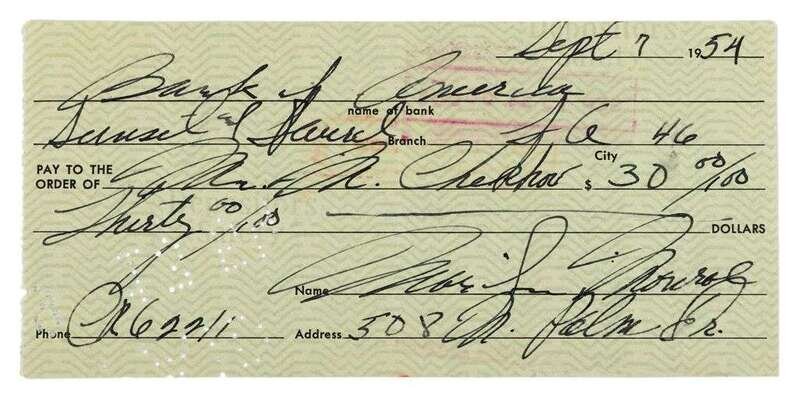 Sept 7 1954
Bank of America
name of bank
Sunset & Laurel Branch L A 46
City
PAY TO THE
ORDER OF Mr. M. Chekhov $ 30 00/100
Thirty 00/100 DOLLARS
Name Marilyn Monroe
Phone CR62211 Address 508 N. Palm Dr.